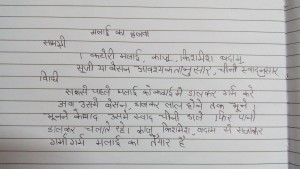 मलाई का हलवा
सामग्री
1 कटोरी मलाई, काजू, किशमिश, बादाम,
सूजी या बेसन आवश्यकतानुसार, चीनी स्वादनुसार
विधि
सबसे पहले मलाई को कढ़ाई में डालकर गर्म करे
अब उसमें बेसन, डालकर लाल होने तक भूने
भूनने के बाद उसमें स्वाद चीनी डाले फिर पानी
डालकर चलाते रहे। काजू किशमिश, बादाम से सजाकर
गर्मागर्म मलाई का तैयार है